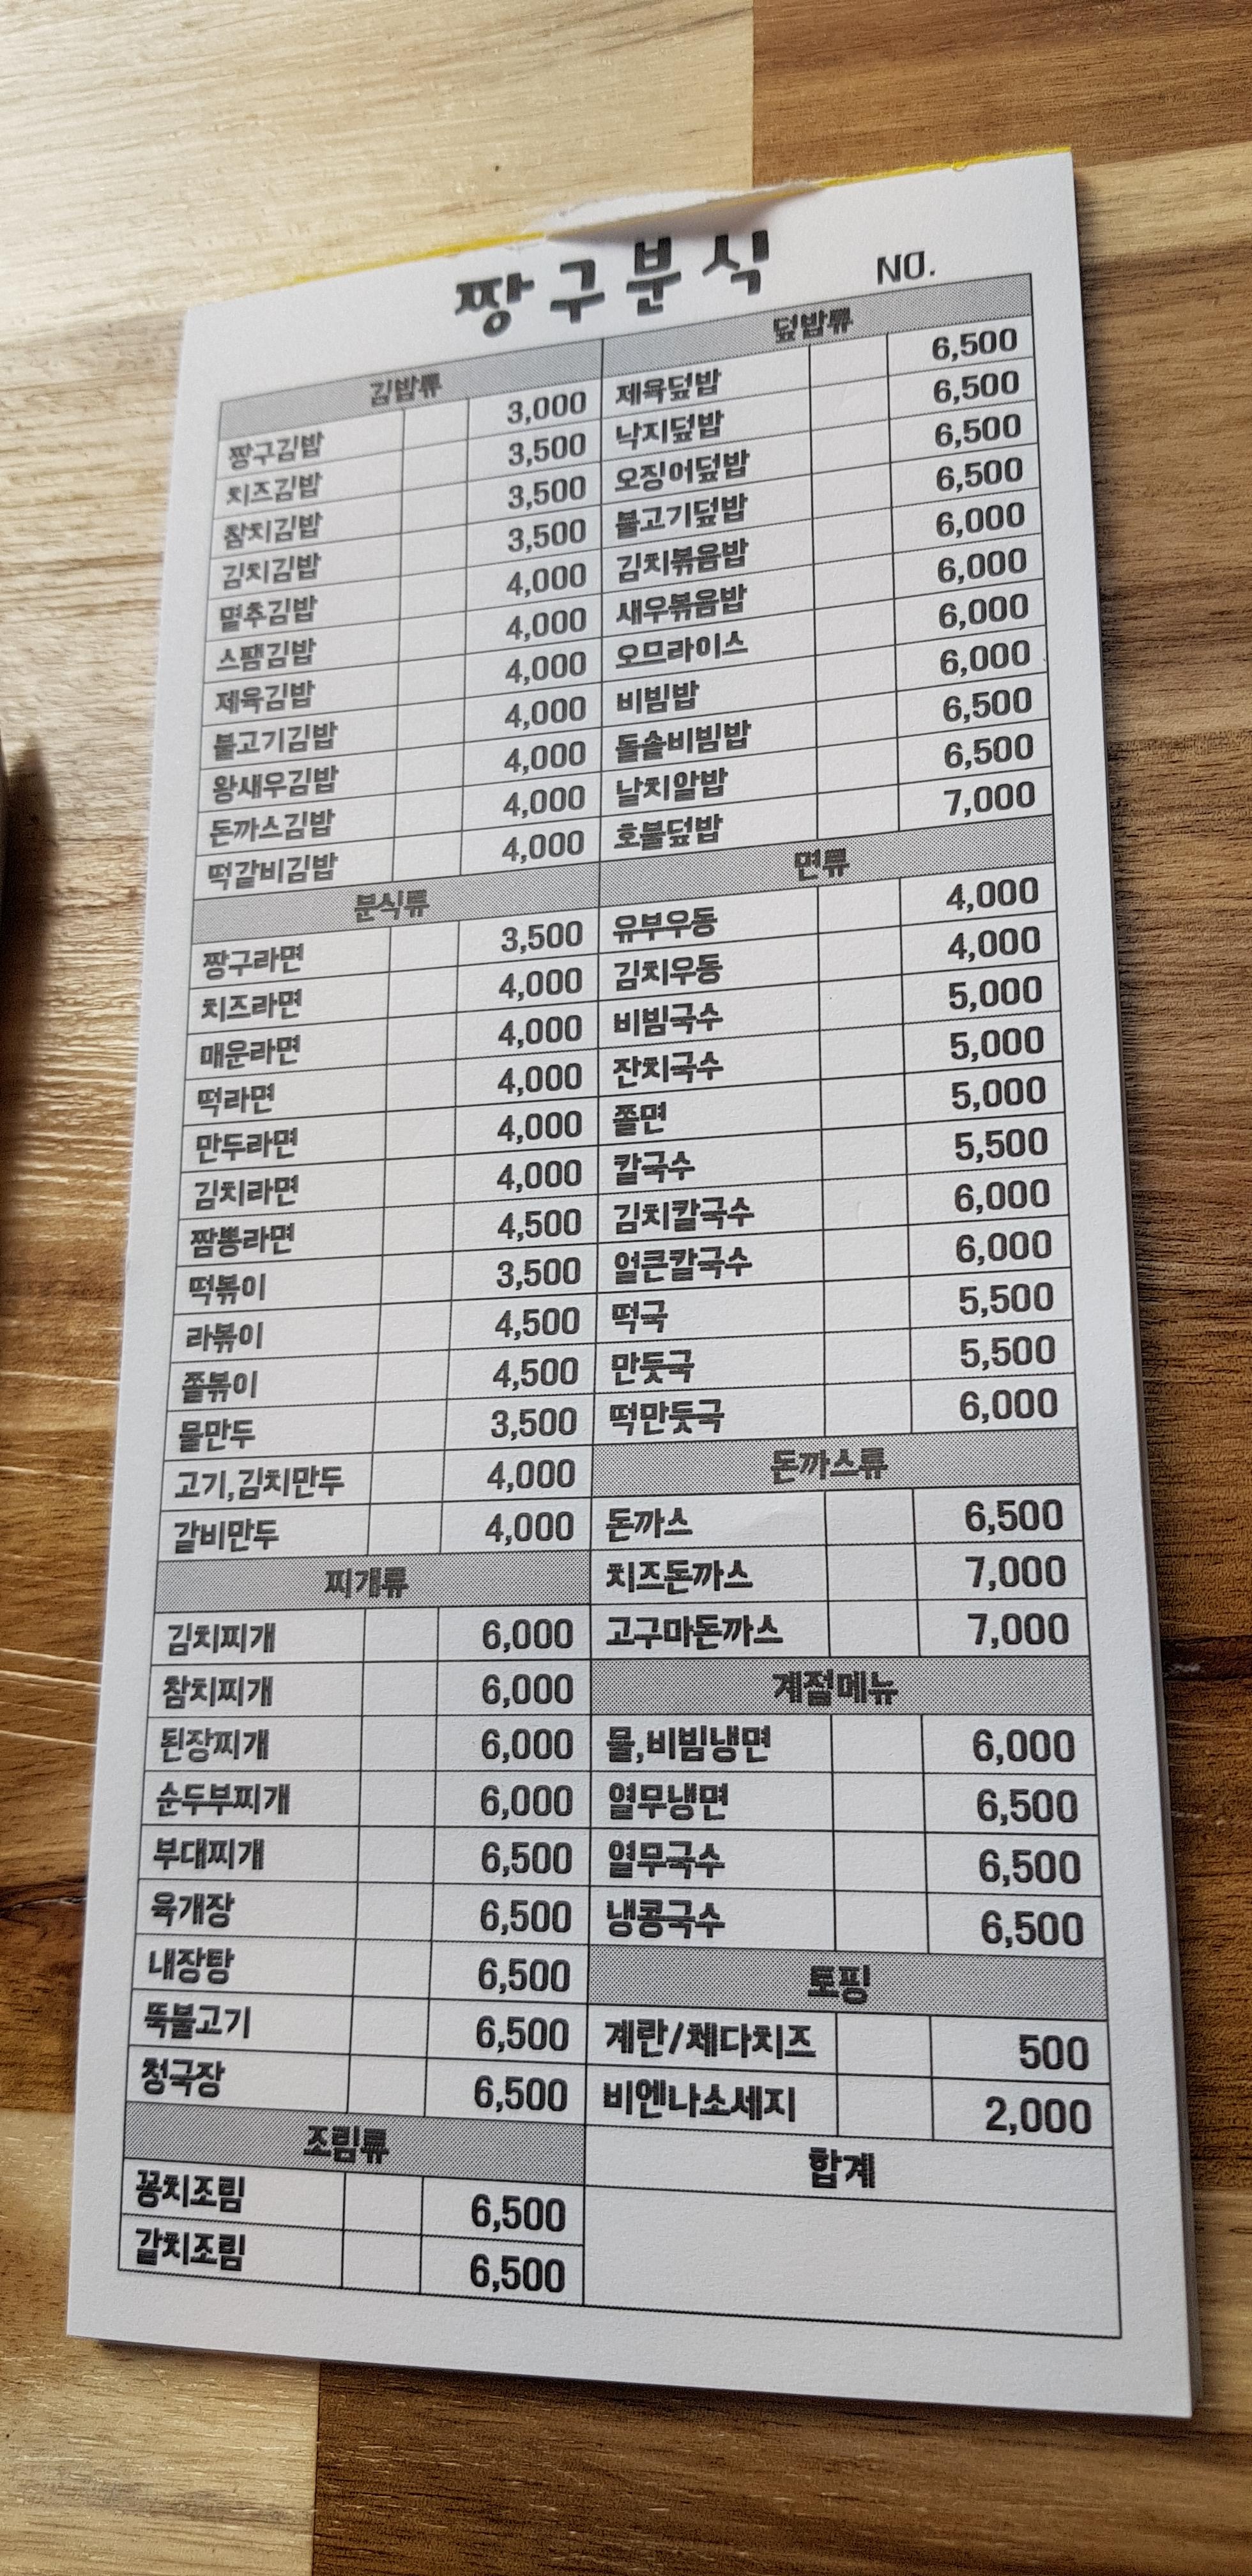 짱구분식
NO.
김밥류
짱구김밥 3,000
치즈김밥 3,500
참치김밥 3,500
김치김밥 3,500
멸추김밥 4,000
스팸김밥 4,000
제육김밥 4,000
불고기김밥 4,000
왕새우김밥 4,000
돈까스김밥 4,000
떡갈비김밥 4,000
분식류
짱구라면 3,500
치즈라면 4,000
매운라면 4,000
떡라면 4,000
만두라면 4,000
김치라면 4,000
짬뽕라면 4,500
떡볶이 3,500
라볶이 4,500
쫄볶이 4,500
물만두 3,500
고기,김치만두 4,000
갈비만두 4,000
찌개류
김치찌개 6,000
참치찌개 6,000
된장찌개 6,000
순두부찌개 6,000
부대찌개 6,500
육개장 6,500
내장탕 6,500
뚝불고기 6,500
청국장 6,500
조림류
꽁치조림 6,500
갈치조림 6,500
덮밥류
제육덮밥 6,500
낙지덮밥 6,500
오징어덮밥 6,500
불고기덮밥 6,500
김치볶음밥 6,000
새우볶음밥 6,000
오므라이스 6,000
비빔밥 6,000
돌솥비빔밥 6,500
날치알밥 6,500
호불덮밥 7,000
면류
유부우동 4,000
김치우동 4,000
비빔국수 5,000
잔치국수 5,000
쫄면 5,000
칼국수 5,500
김치칼국수 6,000
얼큰칼국수 6,000
떡국 5,500
만둣국 5,500
떡만둣국 6,000
돈까스류
돈까스 6,500
치즈돈까스 7,000
고구마돈까스 7,000
계절메뉴
물,비빔냉면 6,000
열무냉면 6,500
열무국수 6,500
냉콩국수 6,500
토핑
계란/체다치즈 500
비엔나소세지 2,000
합계